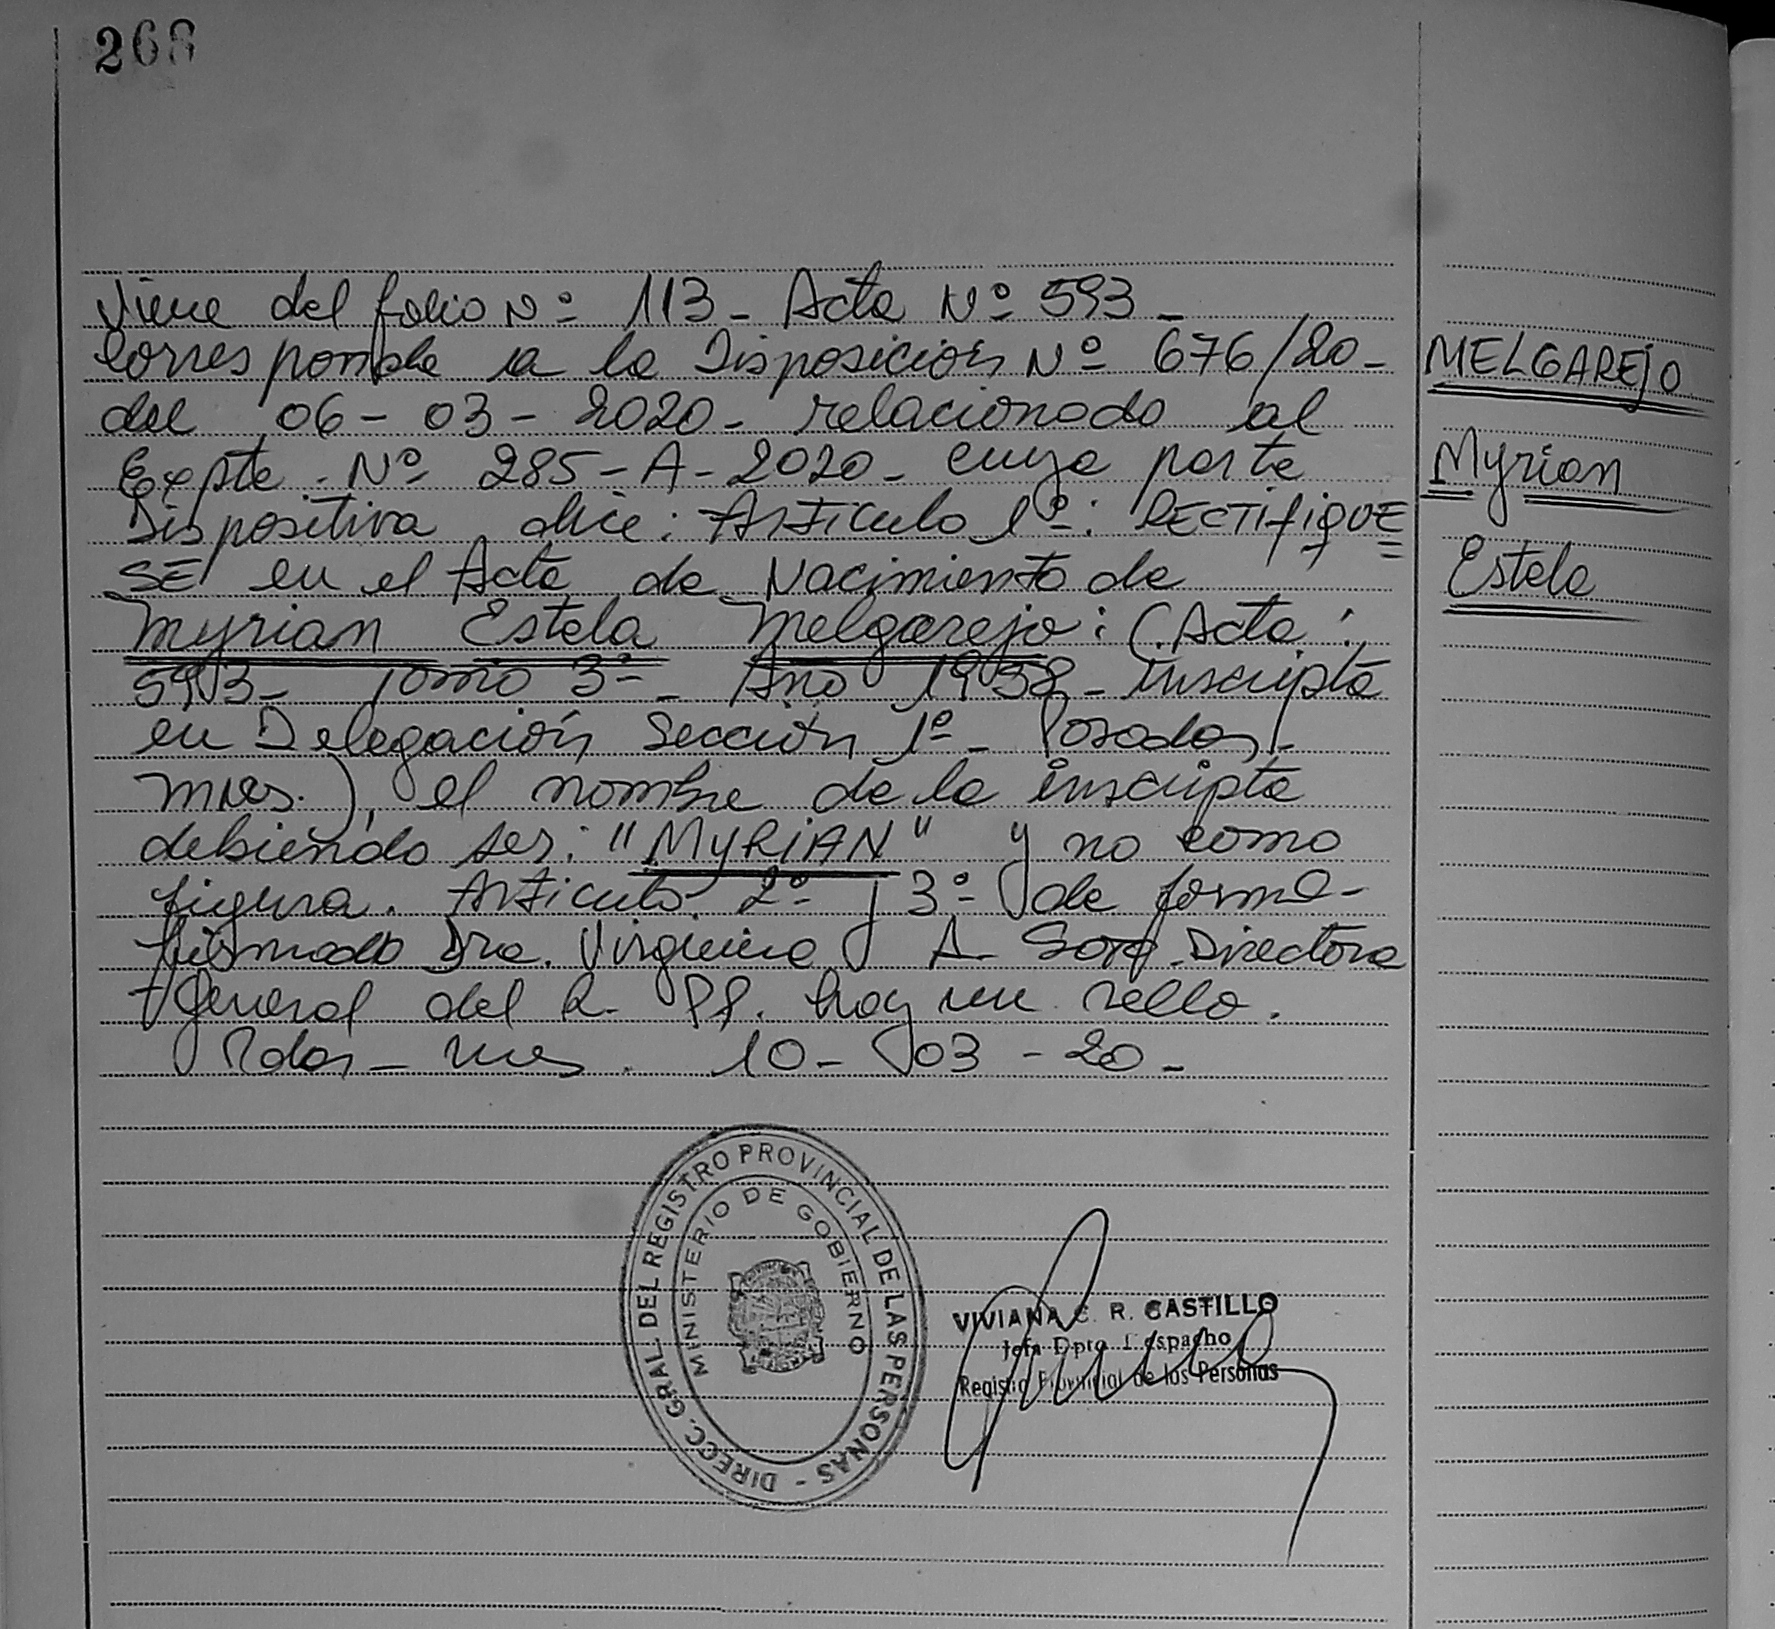 268
Viene del folio Nº 113 - Acta Nº 593 -
Corresponde a la Disposición Nº 676/20 -
del 06 - 03 - 2020 - relacionado al
Expte. Nº 285 - A - 2020 - cuya parte
Dispositiva dice: Artículo 1º: RECTIFIQUE
SE en el Acta de Nacimiento de
Myrian Estela Melgarejo: (Acta:
593 - Tomo 3º - Año 1958 - inscripta
en Delegación Sección 1º - Posadas -
Mnes.), el nombre de la inscripta
debiendo ser: "MYRIAN" y no como
figura. Artículo 2º y 3º de forma -
firmado Dra. Virginia A. Soto. Directora
General del R. PP. hay un sello.
Pdas - Mnes. 10 - 03 - 20 -
MELGAREJO
Myrian
Estela
DIRECC. GRAL. DEL REGISTRO PROVINCIAL DE LAS PERSONAS -
MINISTERIO DE GOBIERNO
VIVIANA C. R. CASTILLO
Jefa Dpto. Despacho
Registro Provincial de las Personas